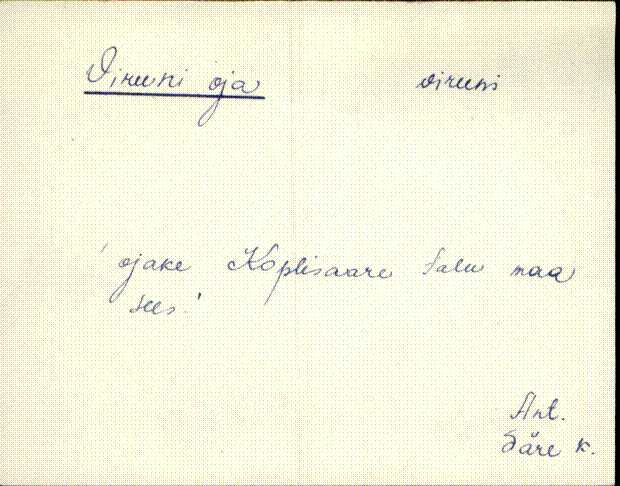 Viruni oja viruni
'ojake Koplisaare talu maa
sees.'
Ant.
Säre k.